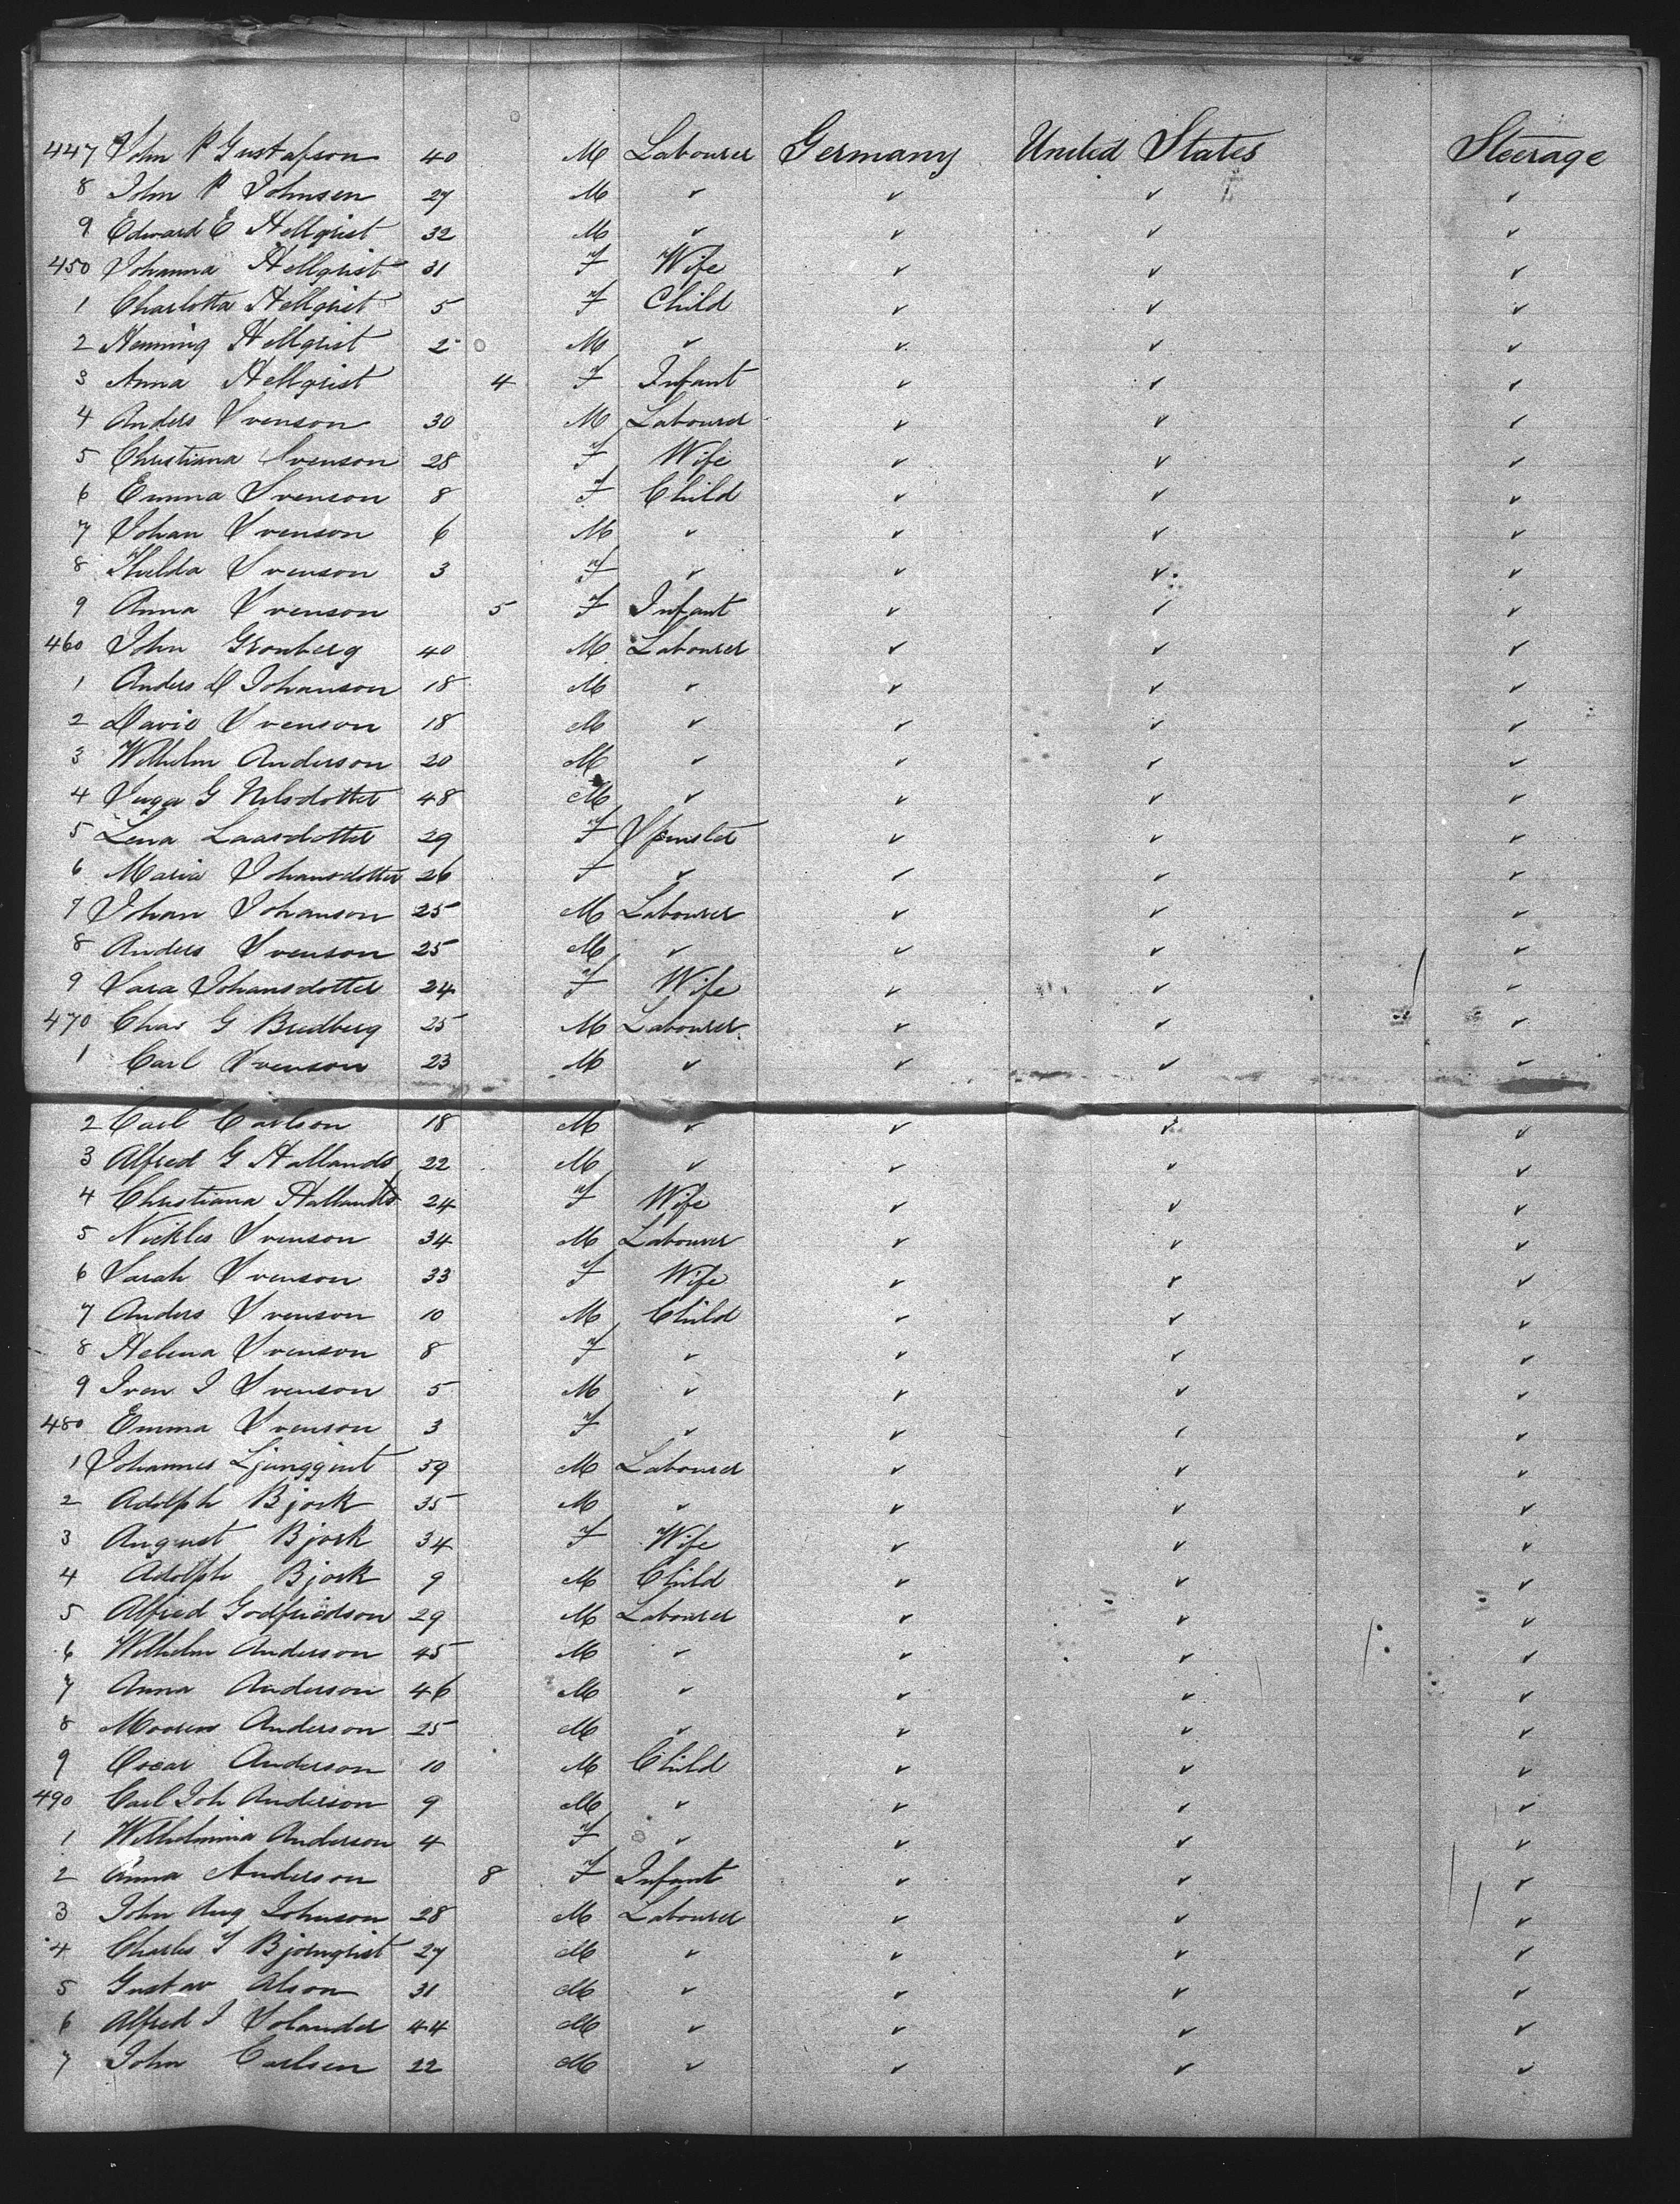 447 John P Gustafson 40 M Labourer Germany United States Steerage
8 John P Johnsen 27 M ✓ ✓ ✓ ✓
9 Edward E Hellqrist 32 M ✓ ✓ ✓ ✓
450 Johanna Hellqrist 31 F Wife ✓ ✓ ✓
1 Charlotta Hellqrist 5 F Child ✓ ✓ ✓
2 Henning Hellqrist 2 M ✓ ✓ ✓ ✓
3 Anna Hellqrist 4 F Infant ✓ ✓ ✓
4 Anders Svenson 30 M Labourer ✓ ✓ ✓
5 Christiana Svenson 28 F Wife ✓ ✓ ✓
6 Emma Svenson 8 F Child ✓ ✓ ✓
7 Johan Svenson 6 M ✓ ✓ ✓ ✓
8 Hulda Svenson 3 F ✓ ✓ ✓ ✓
9 Anna Svenson 5 F Infant ✓ ✓ ✓
460 John Gronberg 40 M Labourer ✓ ✓ ✓
1 Anders D Johanson 18 M ✓ ✓ ✓ ✓
2 David Svenson 18 M ✓ ✓ ✓ ✓
3 Wilhelm Anderson 20 M ✓ ✓ ✓ ✓
4 Inga G Nilsdotter 48 M ✓ ✓ ✓ ✓
5 Lena Laasdotter 29 F Spinster ✓ ✓ ✓
6 Maria Johansdotter 26 F ✓ ✓ ✓ ✓
7 Johan Johanson 25 M Labourer ✓ ✓ ✓
8 Anders Svenson 25 M ✓ ✓ ✓ ✓
9 Sara Johansdotter 24 F Wife ✓ ✓ ✓
470 Chas G Bredberg 25 M Labourer ✓ ✓ ✓
1 Carl Svenson 23 M ✓ ✓ ✓ ✓
2 Carl Carlson 18 M ✓ ✓ ✓ ✓
3 Alfred G Hallands 22 M ✓ ✓ ✓ ✓
4 Christiana Hallands 24 F Wife ✓ ✓ ✓
5 Nickles Svenson 34 M Labourer ✓ ✓ ✓
6 Sarah Svenson 33 F Wife ✓ ✓ ✓
7 Anders Svenson 10 M Child ✓ ✓ ✓
8 Helena Svenson 8 F ✓ ✓ ✓ ✓
9 Iven I Svenson 5 M ✓ ✓ ✓ ✓
480 Emma Svenson 3 F ✓ ✓ ✓ ✓
1 Johannes Ljungqvist 59 M Labourer ✓ ✓ ✓
2 Adolph Bjork 35 M ✓ ✓ ✓ ✓
3 August Bjork 34 F Wife ✓ ✓ ✓
4 Adolph Bjork 9 M Child ✓ ✓ ✓
5 Alfred Godfriedson 29 M Labourer ✓ ✓ ✓
6 Wilhelm Anderson 45 M ✓ ✓ ✓ ✓
7 Anna Anderson 46 M ✓ ✓ ✓ ✓
8 Anderson 25 M ✓ ✓ ✓ ✓
9 Oscar Anderson 10 M Child ✓ ✓ ✓
490 Carl Joh Anderson 9 M ✓ ✓ ✓ ✓
1 Wilhelmina Anderson 4 F ✓ ✓ ✓ ✓
2 Anna Anderson 8 F Infant ✓ ✓ ✓
3 John Aug Johnson 28 M Labourer ✓ ✓ ✓
4 Charles I Bjornqrist 27 M ✓ ✓ ✓ ✓
5 Gustav Alson 31 M ✓ ✓ ✓ ✓
6 Alfred I Solander 44 M ✓ ✓ ✓ ✓
7 John Carlsen 22 M ✓ ✓ ✓ ✓